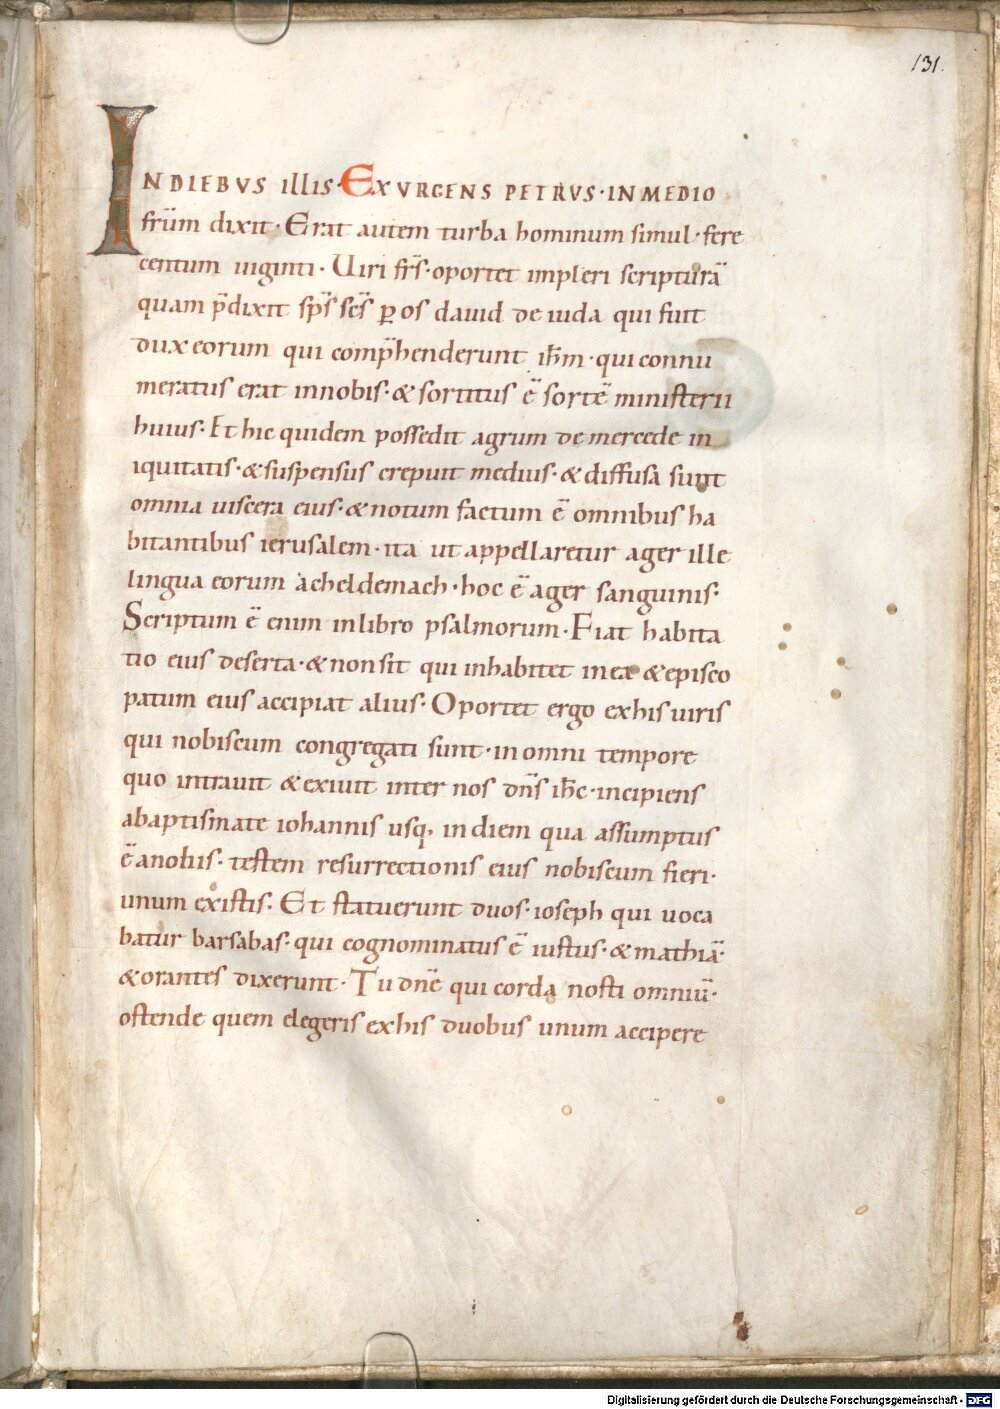 131.
IN DIEBVS ILLIS· EXVRGENS PETRVS· IN MEDIO
frūm dixit· Erat autem turba hominum simul· fere
centum uiginti· Uiri frs̄· oportet impleri scripturā
quam p̄dixit sps̄ scs̄ ꝑ os dauid de iuda qui fuit
dux eorum qui comp̄henderunt ih̄m· qui connu
meratus erat in nobis· & sortitus ē sortē ministerii
huius· Et hic quidem possedit agrum de mercede in
iquitatis· & suspensus crepuit medius· & diffusa sunt
omnia uiscera eius· & notum factum ē omnibus ha
bitantibus ierusalem· ita ut appellaretur ager ille
lingua eorum acheldemach· hoc ē ager sanguinis·
Scriptum ē enim in libro psalmorum· Fiat habita
tio eius deserta· & non sit qui inhabitet in ea & episco
patum eius accipiat alius· Oportet ergo ex his uiris
qui nobiscum congregati sunt· in omni tempore
quo intrauit & exiuit inter nos dn̄s ih̄c· incipiens
a baptismate iohannis usq, in diem qua assumptus
ē a nobis· testem resurrectionis eius nobiscum fieri·
unum ex istis· Et statuerunt duos· ioseph qui uoca
batur barsabas· qui cognominatus ē iustus· & mathiā·
& orantes dixerunt· Tu dn̄e qui corda nosti omniū·
ostende quem elegeris ex his duobus unum accipere
Digitalisierung gefördert durch die Deutsche Forschungsgemeinschaft - DFG